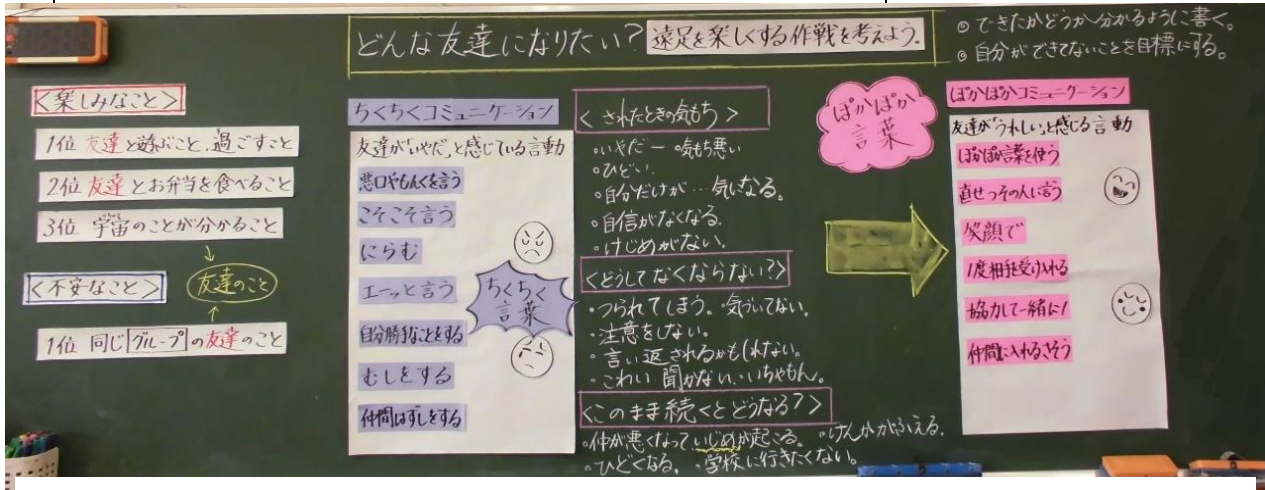 どんな友達になりたい？ 遠足を楽しくする作戦を考えよう。
◎できたかどうか分かるように書く。
◎自分ができてないことを目標にする。
＜楽しみなこと＞
1位 友達と遊ぶこと、過ごすこと
2位 友達とお弁当を食べること
3位 宇宙のことが分かること
↓
＜不安なこと＞
友達のこと
↑
1位 同じグループの友達のこと
ちくちくコミュニケーション
友達が「いやだ」と感じている言動
悪口やもんくを言う
こそこそ言う
にらむ
エーっと言う
自分勝手なことをする
むしをする
仲間はずしをする
ちくちく
言葉
＜されたときの気もち＞
・いやだー ・気もち悪い
・ひどい。
・自分だけが…気になる。
・自信がなくなる。
・けじめがない。
＜どうしてなくならない？＞
・つられてしまう。・気づいてない。
・注意をしない。
・言い返されるかもしれない。
・こわい・聞かない・いちゃもん。
＜このまま続くとどうなる？＞
・仲が悪くなっていじめが起こる。・けんかがふえる。
・ひどくなる。・学校に行きたくない。
ぽかぽか
言葉
ぽかぽかコミュニケーション
友達が「うれしい」と感じる言動
ぽかぽか言葉を使う
直せつその人に言う
笑顔で
1度相手を受け入れる
協力して一緒に！
仲間に入れるさそう